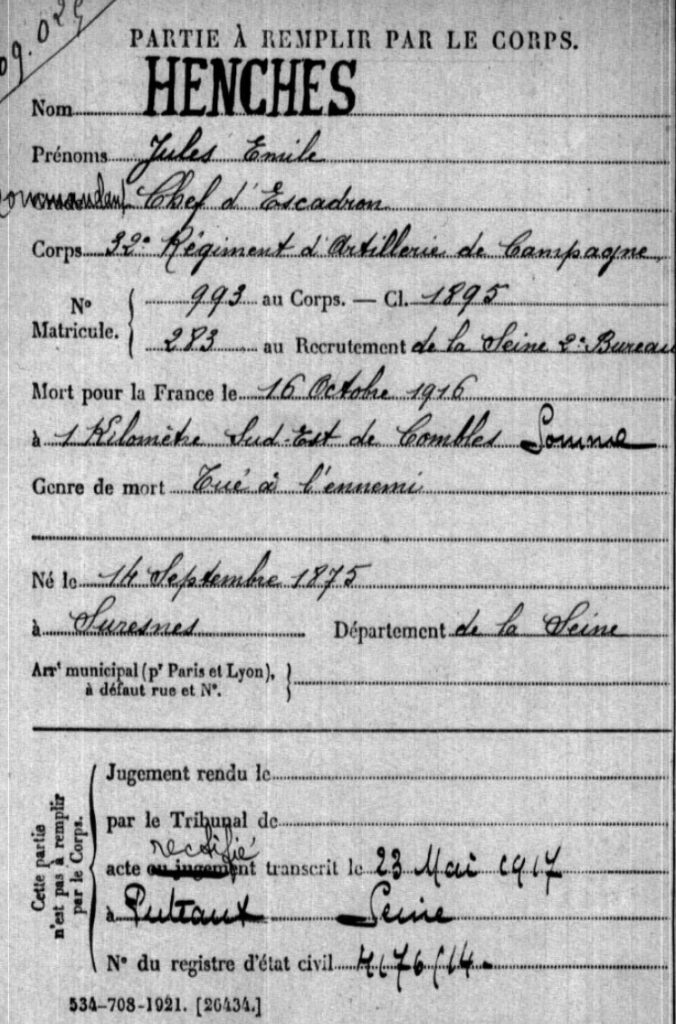 09.029
PARTIE À REMPLIR PAR LE CORPS.
Nom HENCHES
Prénoms Jules Emile
Commandant Chef d'Escadron
Corps 32e Régiment d'Artillerie de Campagne
No Matricule. 993 au Corps. — Cl. 1895
283 au Recrutement de la Seine 2e Bureau
Mort pour la France le 16 Octobre 1916
à 1 Kilomètre Sud-Est de Combles Somme
Genre de mort Tué à l'ennemi
Né le 14 Septembre 1875
à Suresnes Département de la Seine
Arrt municipal (pr Paris et Lyon),
à défaut rue et No.
Cette partie n'est pas à remplir par le Corps.
Jugement rendu le
par le Tribunal de
rectifié
acte ou jugement transcrit le 23 Mai 1917
à Puteaux Seine
No du registre d'état civil
534-708-1921. [26434.]